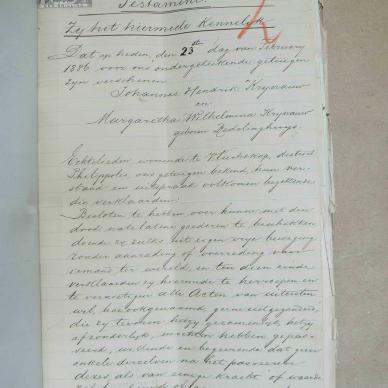 Testament.
Zy het hiermede Kennelyk
Dat op heden, den 23ste dag van February
1886, voor ons ondergeteekende getuigen
zyn verschenen
Johannes Hendrik Krynauw
en
Margaretha Wilhelmina Krynauw
geboren Dedelinghuys.
Echtelieden woonende te Vluchtkop, district
Philippolis, ons getuigen bekend, hun ver-
stand en uitspraak volkomen bezittende
die verklaarden:
Besloten te hebben over hunne met den
dood natelaten goederen te beschikken
doende zy zulks uit eigen vrye beweging
zonder aanrading of overreding van
iemand ter wereld, en ten dien einde
verklaarden zy hiermede te herroepen en
te vernietigen alle Acten van uitersten
wil, hoe ook genaamd, gemeld gezamend,
die zy tevoren hetzy gezamenlyk, hetzy
afzonderlyk, mochten hebben gepas-
seerd, willende en begeerende dat geen
enkele derzelven na het passeeren
dezes, als van eenige kracht of waarde